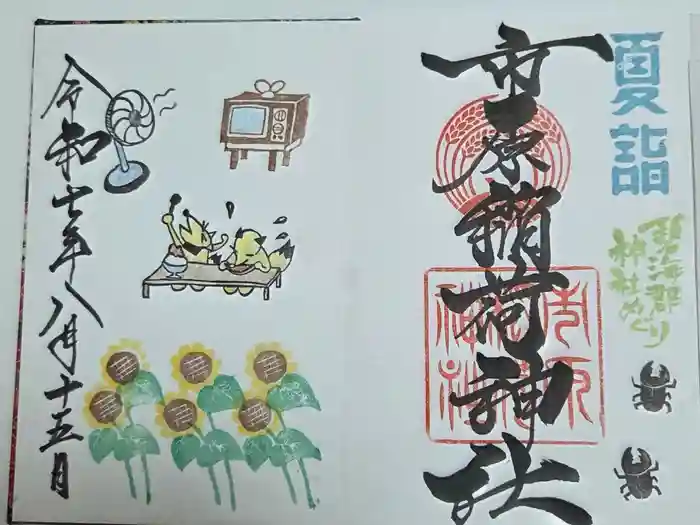 夏詣
碧海郡
神社めぐり
市原稲荷神社
市原
稲荷
神社
令和七年八月十五日